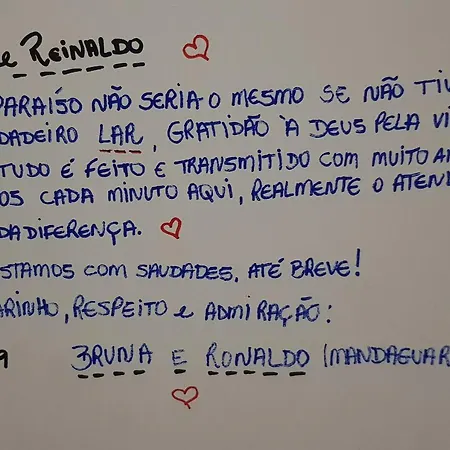 e REINALDO
PARAÍSO NÃO SERIA O MESMO SE NÃO TIV
DADEIRO LAR, GRATIDÃO À DEUS PELA VI
TUDO É FEITO E TRANSMITIDO COM MUITO AM
OS CADA MINUTO AQUI, REALMENTE O ATEND
DA DIFERENÇA.
STAMOS COM SAUDADES, ATÉ BREVE!
ARINHO, RESPEITO e ADMIRAÇÃO:
9 BRUNA E RONALDO (MANDAGUAR